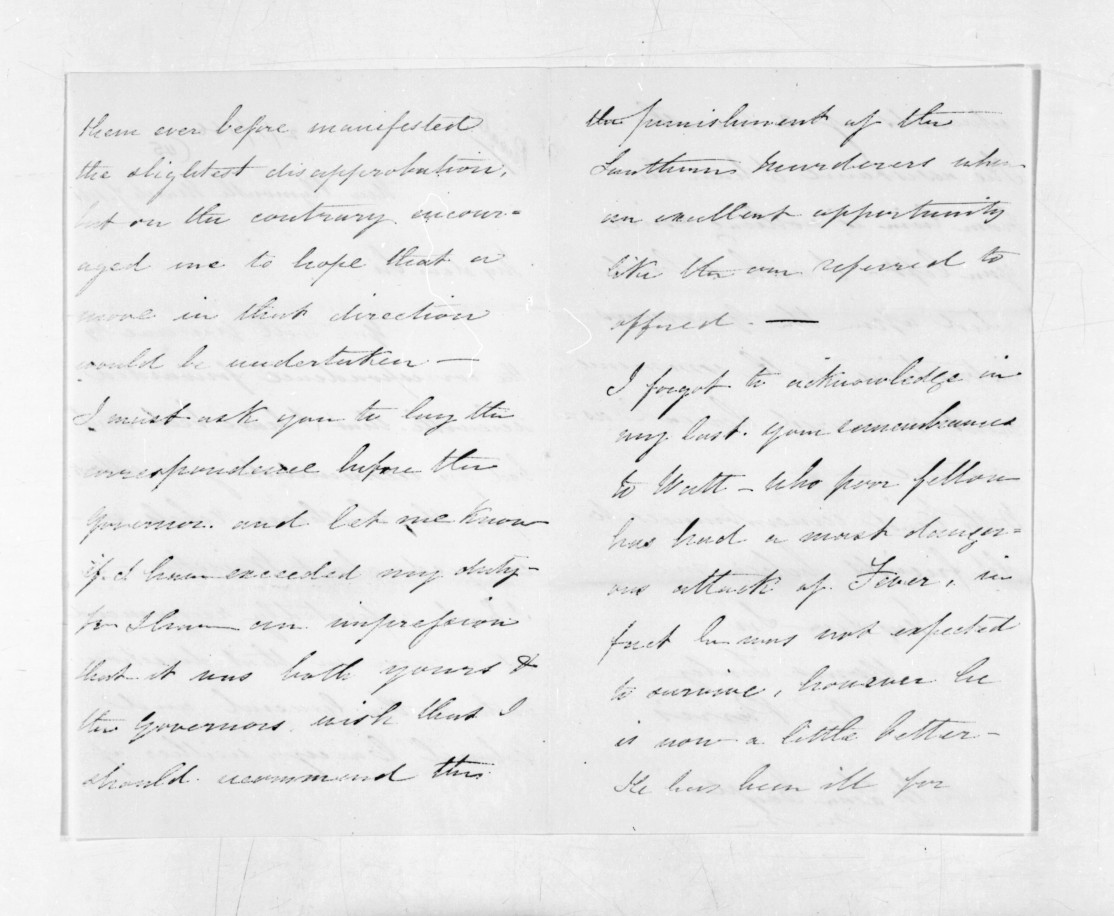 them ever before manifested
the slightest disapprobation,
but on the contrary encour=
aged me to hope that a
move in that direction
would be undertaken —
I must ask you to lay the
correspondence before the
Governor. and let me know
if I have exceeded my duty—
for I have an impression
that it was both yours &
the Governors wish that I
should recommend the
the punishment of the
Southern Murderers when
an excellent opportunity
like the one referred to
offered. —
I forgot to acknowledge in
my last. your remembrances
to Watt — who poor fellow
has had a most danger=
ous attack of Fever, in
fact he was not expected
to survive, however he
is now a little better—
He has been ill for